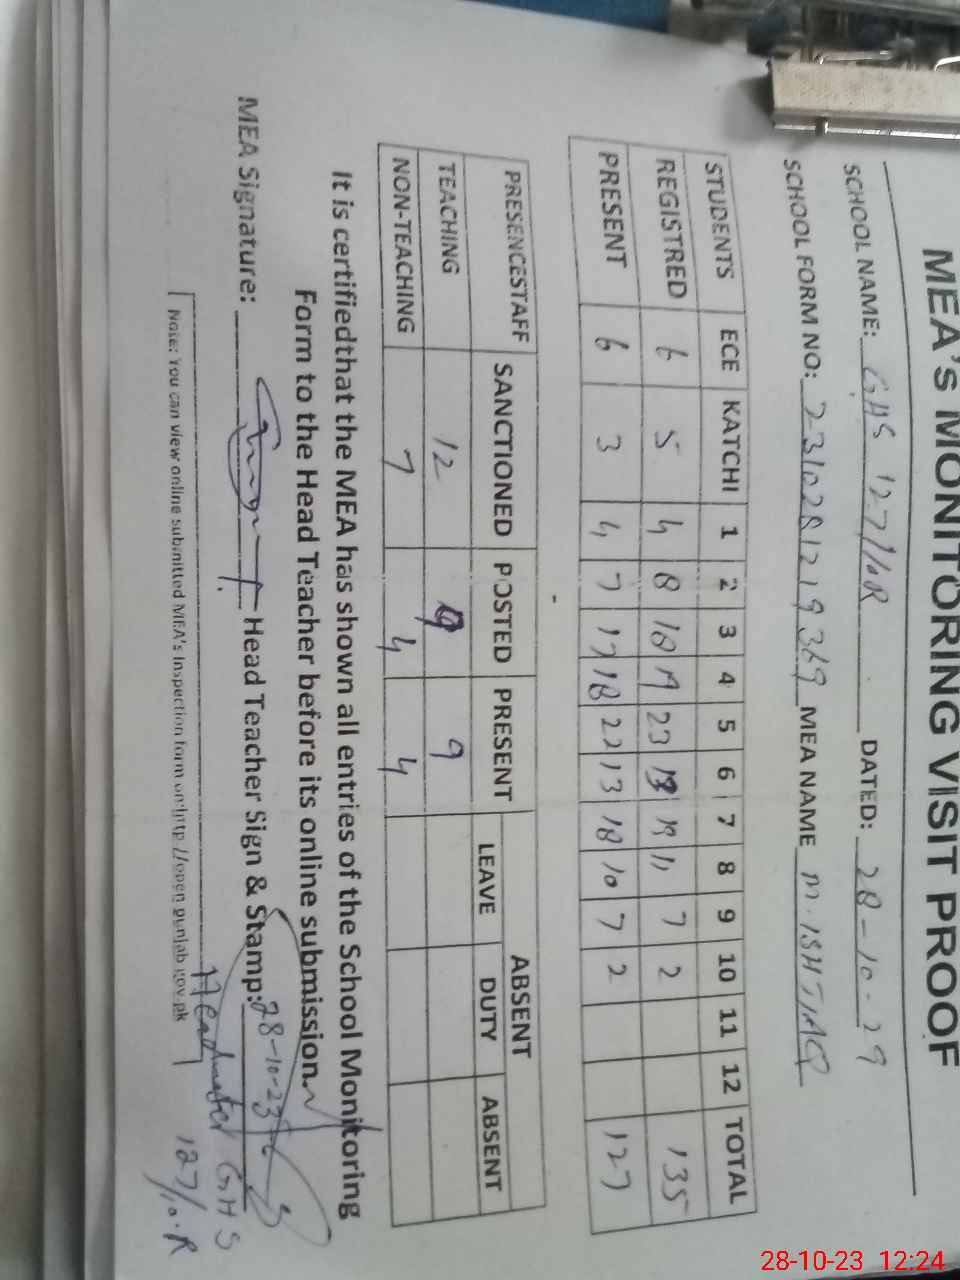 MEA'S MONITORING VISIT PROOF
SCHOOL NAME: GHS 127/10R DATED: 28-10-29
SCHOOL FORM NO: 2310281219369 MEA NAME M. ISHTIAQ
STUDENTS ECE KATCHI 1 2 3 4 5 6 7 8 9 10 11 12 TOTAL
REGISTRED 6 5 4 8 18 19 23 13 19 11 7 2 135
PRESENT 6 3 4 7 17 18 22 13 18 10 7 2 127
PRESENCESTAFF SANCTIONED POSTED PRESENT ABSENT
LEAVE DUTY ABSENT
TEACHING 12 9 9
NON-TEACHING 7 4 4
It is certifiedthat the MEA has shown all entries of the School Monitoring
Form to the Head Teacher before its online submission.
MEA Signature: Head Teacher Sign & Stamp: 28-10-23
Headmaster GHS
127/10.R
Note: You can view online submitted MEA's Inspection form on:http://open.punjab.gov.pk
28-10-23 12:24